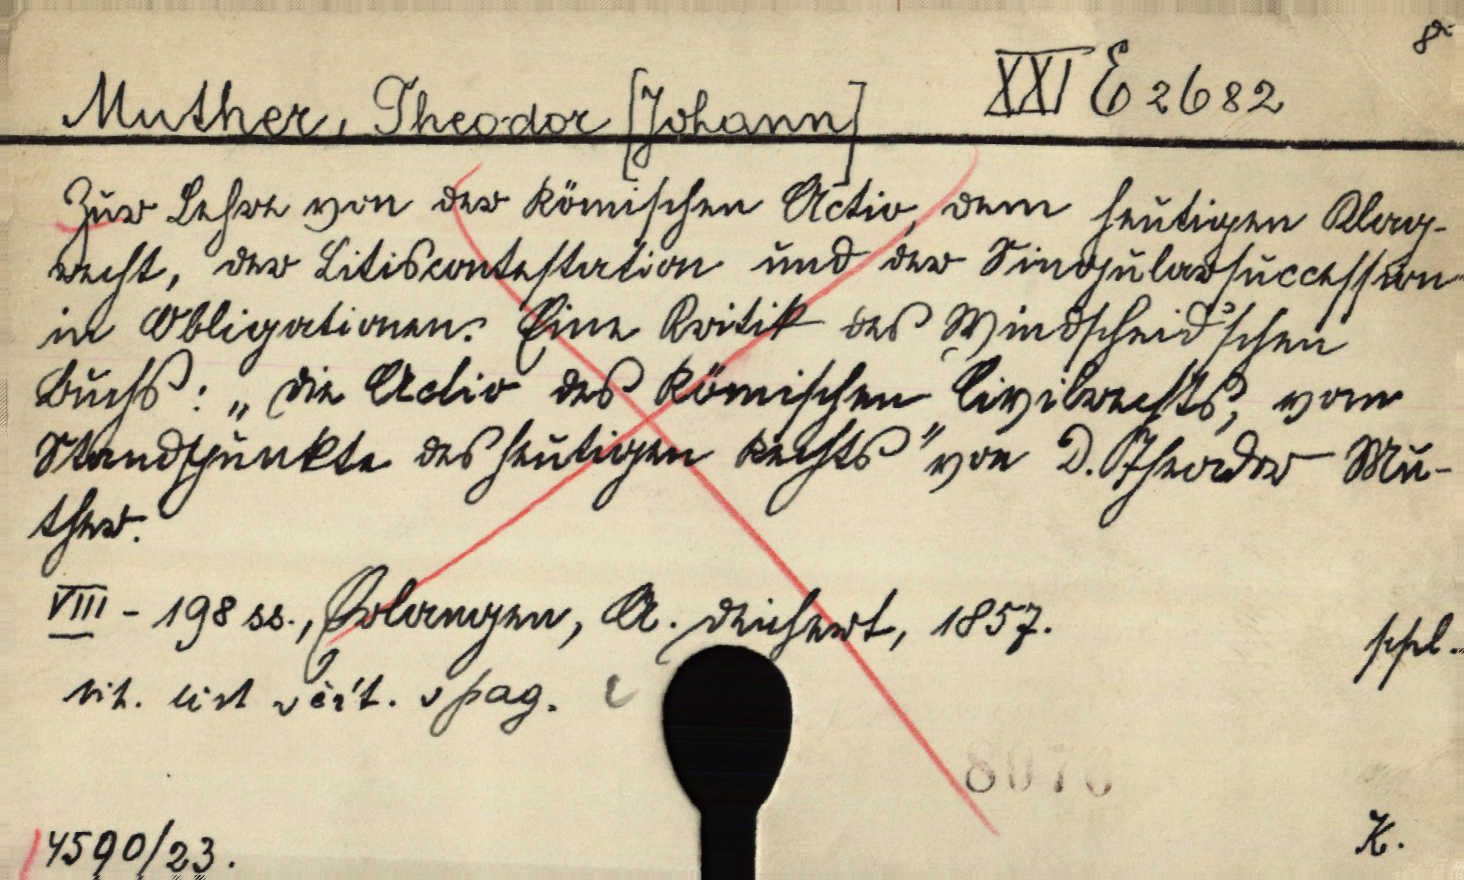 8°
Muther, Theodor [Johann] XXI E 2682
Zur Lehre von der Römischen Actio, dem heutigen Klag-
recht, der Litiscontestation und der Singularsuccession
in Obligationen. Eine Kritik des Windscheid'schen
Buchs: „die Actio des Römischen Civilrechts, vom
Standpunkte des heutigen Rechts" von D. Theodor Mu-
ther.
VIII - 198 ss., Erlangen, A. Deichert, 1857.
ppl.
tit. list včít. v pag.
8076
4590/23. K.